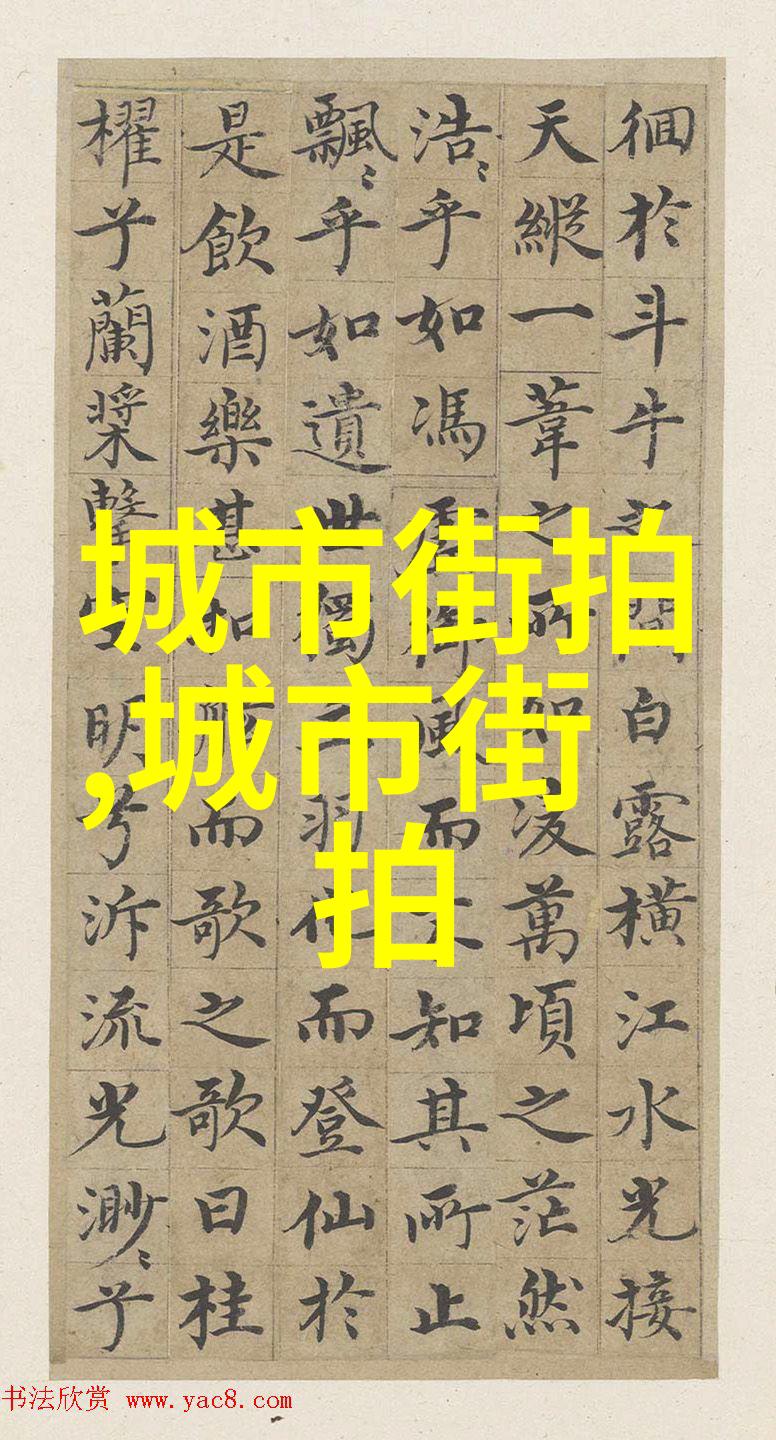 徊於斗牛之間白露橫江水光接
天縱一葦之所如凌萬頃之茫然
浩〻乎如馮虛御風而不知其所止
飄〻乎如遺世獨立羽化而登仙於
是飲酒樂甚扣舷而歌之歌曰桂
櫂兮蘭槳擊空明兮泝流光渺〻兮
城市街拍
,城市街
拍
书法欣赏 www.yac8.com